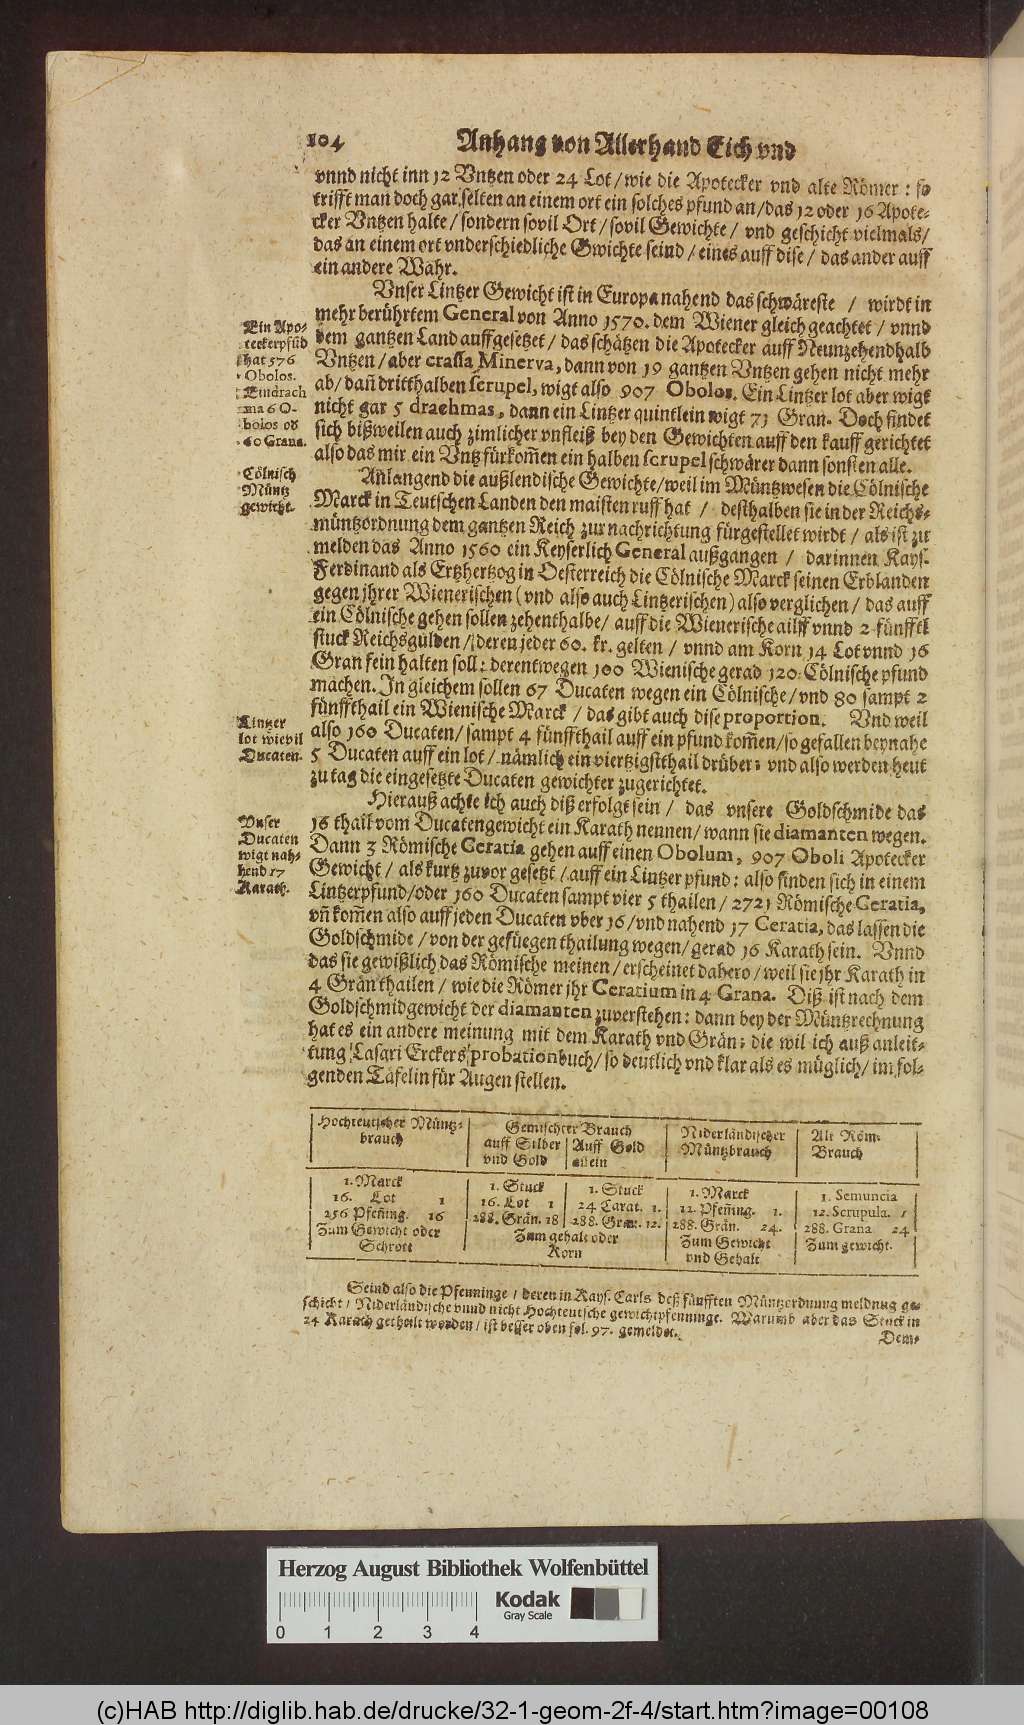 104 Anhang von Allerhand Eich vnd
vnnd nicht inn 12 Vntzen oder 24 Lot / wie die Apotecker vnd alte Römer : so
trifft man doch gar selten an einem ort ein solches pfund an / das 12 oder 16 Apote-
cker Vntzen halte / sondern sovil Ort / sovil Gewichte / vnd geschicht vielmals /
das an einem ort vnderschiedliche Gwichte seind / eines auff dise / das ander auff
ein andere Wahr.
Vnser Lintzer Gewicht ist in Europa nahend das schwäreste / wirdt in
mehr berührtem General von Anno 1570. dem Wiener gleich geachtet / vnnd
dem gantzen Land auffgesetzet / das schätzen die Apotecker auff Neunzehendhalb
Vntzen / aber crassa Minerva, dann von 19 gantzen Vntzen gehen nicht mehr
ab / dañ dritthalben scrupel, wigt also 907 Obolos. Ein Lintzer lot aber wigt
nicht gar 5 drachmas, dann ein Lintzer quintlein wigt 71 Gran. Doch findet
sich bißweilen auch zimlicher vnfleiß bey den Gewichten auff den kauff gerichtet
also das mir ein Vntz fürkom̃en ein halben scrupel schwärer dann sonsten alle.
Ein Apo-
teckerpfũd
hat 576
Obolos.
Ein drach
ma 6 O-
bolos od
60 Grana.
Anlangend die außlendische Gewichte / weil im Müntzwesen die Cölnische
Marck in Teutschen Landen den maisten ruff hat / desthalben sie in der Reichs-
müntzordnung dem gantzen Reich zur nachrichtung fürgestellet wirdt / als ist zu
melden das Anno 1560 ein Keyserlich General außgangen / darinnen Kays.
Ferdinand als Ertzhertzog in Oesterreich die Cölnische Marck seinen Erblanden
gegen jhrer Wienerischen (vnd also auch Lintzerischen) also verglichen / das auff
ein Cölnische gehen sollen zehenthalbe / auff die Wienerische ailff vnnd 2 fünfftl
stuck Reichsgulden / (deren jeder 60. kr. gelten / vnnd am Korn 14 Lot vnnd 16
Gran fein halten soll: derentwegen 100 Wienische gerad 120 Cölnische pfund
machen. In gleichem sollen 67 Ducaten wegen ein Cölnische / vnd 80 sampt 2
fünffthail ein Wienische Marck / das gibt auch dise proportion. Vnd weil
also 160 Ducaten / sampt 4 fünffthail auff ein pfund kom̃en / so gefallen beynahe
5 Ducaten auff ein lot / nämlich ein viertzigstthail drüber: vnd also werden heut
zu tag die eingesetzte Ducaten gewichter zugerichtet.
Cölnisch
Müntz
gewicht.
Lintzer
lot wievil
Ducaten.
Hierauß achte ich auch diß erfolgt sein / das vnsere Goldschmide das
16 thail vom Ducatengewicht ein Karath nennen / wann sie diamanten wegen.
Dann 3 Römische Ceratia gehen auff einen Obolum, 907 Oboli Apotecker
Gewicht / als kurtz zuvor gesetzt / auff ein Lintzer pfund: also finden sich in einem
Lintzerpfund / oder 160 Ducaten sampt vier 5 thailen / 2721 Römische Ceratia,
vñ kom̃en also auff jeden Ducaten vber 16 / vnd nahend 17 Ceratia, das lassen die
Goldschmide / von der gefüegen thailung wegen / gerad 16 Karath sein. Vnnd
das sie gewißlich das Römische meinen / erscheinet dahero / weil sie jhr Karath in
4 Grän thailen / wie die Römer jhr Ceratium in 4 Grana. Diß ist nach dem
Goldschmidgewicht der diamanten zuverstehen: dann bey der Müntzrechnung
hat es ein andere meinung mit dem Karath vnd Grän: die wil ich auß anleit-
tung Lasari Erckers probationbuch / so deutlich vnd klar als es müglich / im fol-
genden Täfelin für Augen stellen.
Vnser
Ducaten
wigt nah-
hend 17
Karath.
Hochteutscher Müntz-
brauch
Gemischter Brauch
auff Silber
vnd Gold
Auff Gold
allein
Niderländischer
Müntzbrauch
Alt Röm:
Brauch
1. Marck
16. Lot 1
256 Pfeñing. 16
Zum Gewicht oder
Schrott
1. Stuck
16. Lot 1
288. Grän. 18
1. Stuck
24 Carat. 1.
288. Grän. 12.
Zum gehalt oder
Korn
1. Marck
12. Pfeñing. 1.
288. Grän. 24.
Zum Gewicht
vnd Gehalt
1. Semuncia
12. Scrupula. 1
288. Grana 24
Zum gewicht.
Seind also die Pfenninge / deren in Kays. Carls deß fünfften Müntzordnung meldung ge-
schicht / Niderländische vnnd nicht Hochteutsche gewichtpfenninge. Warumb aber das Stuck in
24 Karath getheilt worden / ist besser oben fol. 97. gemeldet.
Dem-
Herzog August Bibliothek Wolfenbüttel
0 1 2 3 4
Kodak
Gray Scale
(c)HAB http://diglib.hab.de/drucke/32-1-geom-2f-4/start.htm?image=00108